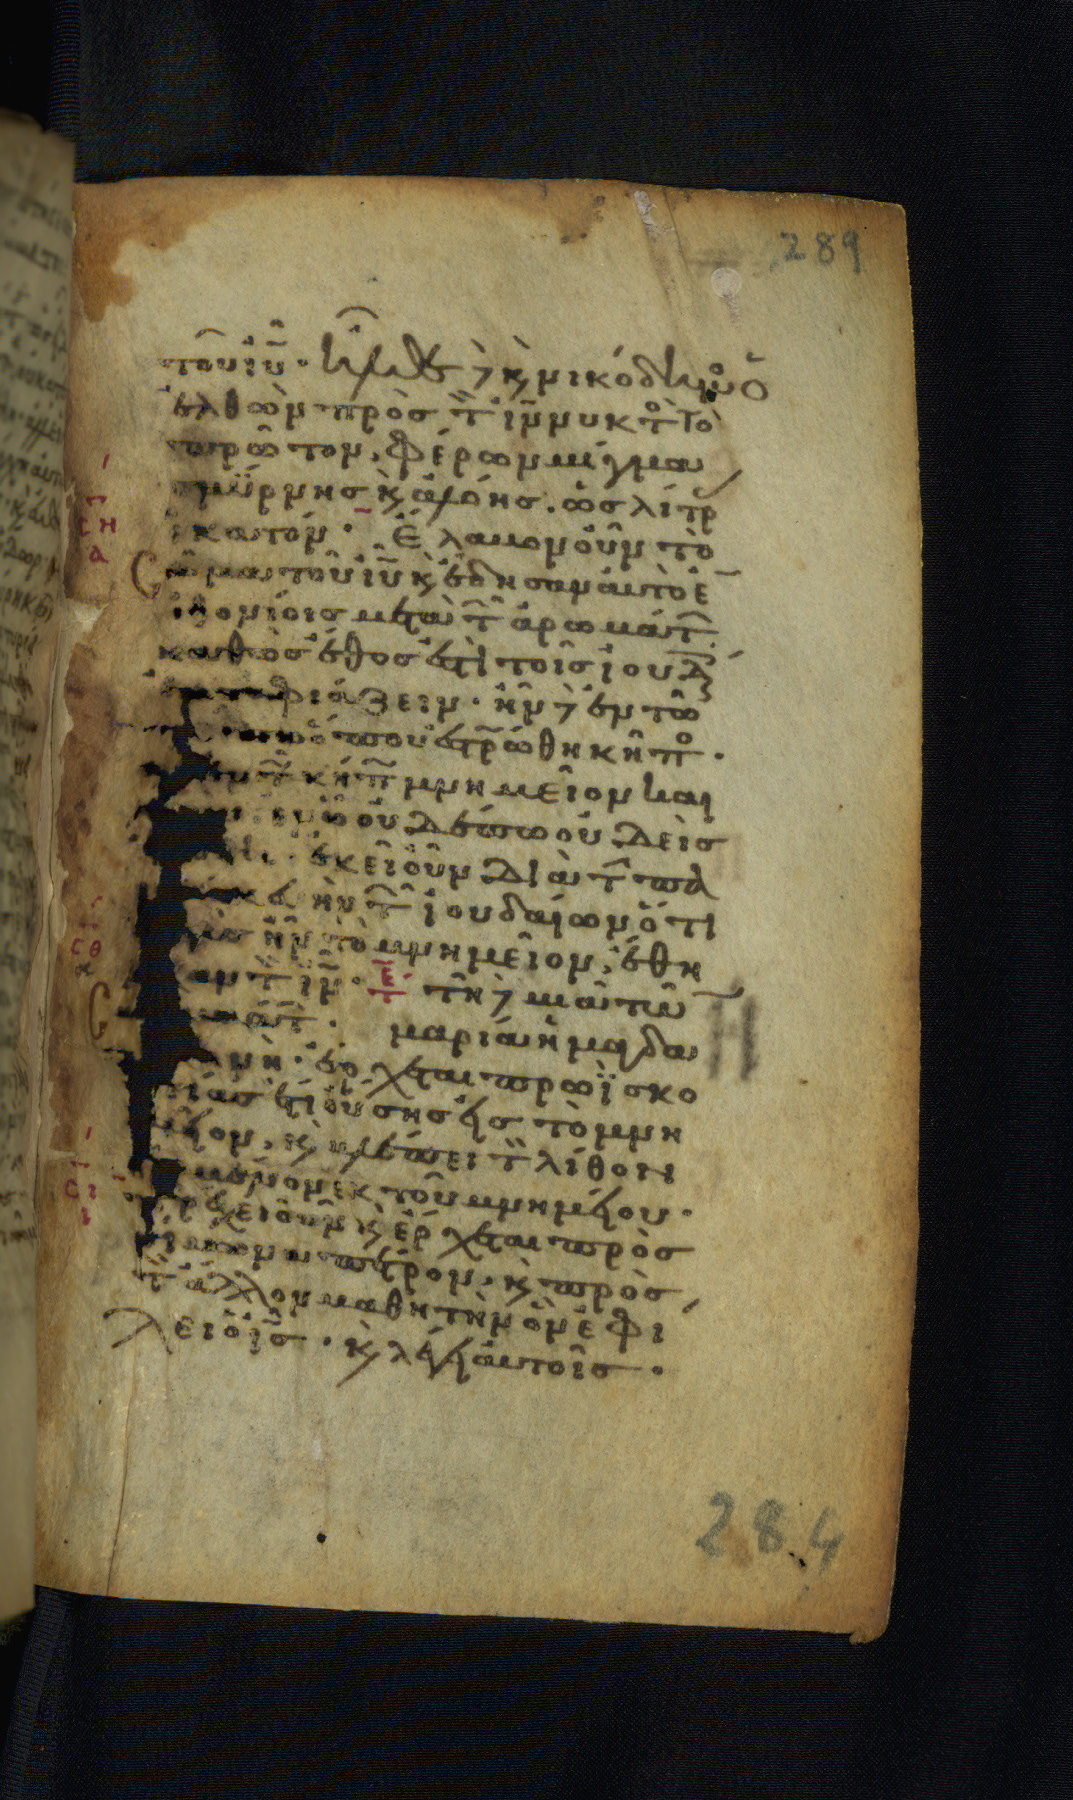 289
τοῦ ἰῡ· ἦλθε δ(ὲ) κ(αὶ) νικόδημο(ς) ὁ
ἐλθὼν πρὸς τ(ὸν) ἰν νυκτο(ς) τὸ
πρῶτον, φέρων μίγμα
σμύρνης κ(αὶ) ἀλόης. ὡς λίτρ(ας)
ἑκατόν· Ἔλαβον οὖν τὸ
σῶμα τοῦ ἰῡ κ(αὶ) ἔδησαν αὐτὸ ἐ(ν)
ὀθονίοις μετὰ τ(ῶν) ἀρωμάτ(ων)
καθὼς ἔθος ἐστὶ τοῖς ἰουδ(αίοις)
ἐνταφιάζειν· ἦν δ(ὲ) ἐν τῶ
ὅπου ἐστ(αυ)ρώθη κῆπο(ς)·
τ(ῶ) κήπ(ω) μνημεῖον και
ὧ οὐδέπω οὐδεὶς
ἐκεῖ οὖν διὰ τ(ὴν) πα
τ(ῶν) ἰουδαίων ὅτι
ἦν τὸ μνημεῖον, ἔθη
τ(ὸν) ἰν· τε τῆ δ(ὲ) μιᾶ τῶ(ν)
μαρία ἡ μαγδα
νὴ· ἔρχεται πρωῒ σκο
τίας ἔτι οὔσης εἰς τὸ μνη
μεῖον, κ(αὶ) βλέπει τ(ὸν) λίθον
ἠρμένον ἐκ τοῦ μνημείου·
τρέχει οὖν κ(αὶ) ἔρχεται πρὸς
σίμωνα πέτρον, κ(αὶ) πρὸς
τ(ὸν) ἄλλον μαθητὴν ὃν ἐφί
λει ὁ ἰς· κ(αὶ) λέγει αὐτοῖς·
284